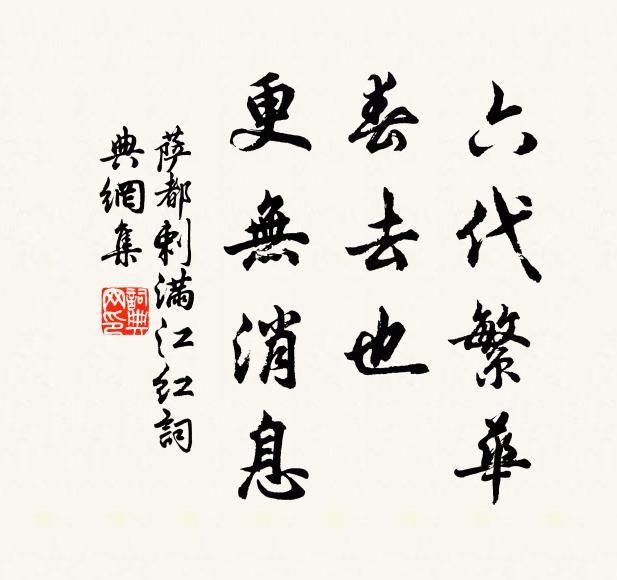 六代繁華
春去也
更無消息
薩都剌滿江紅詞
典網集
詞典
网印